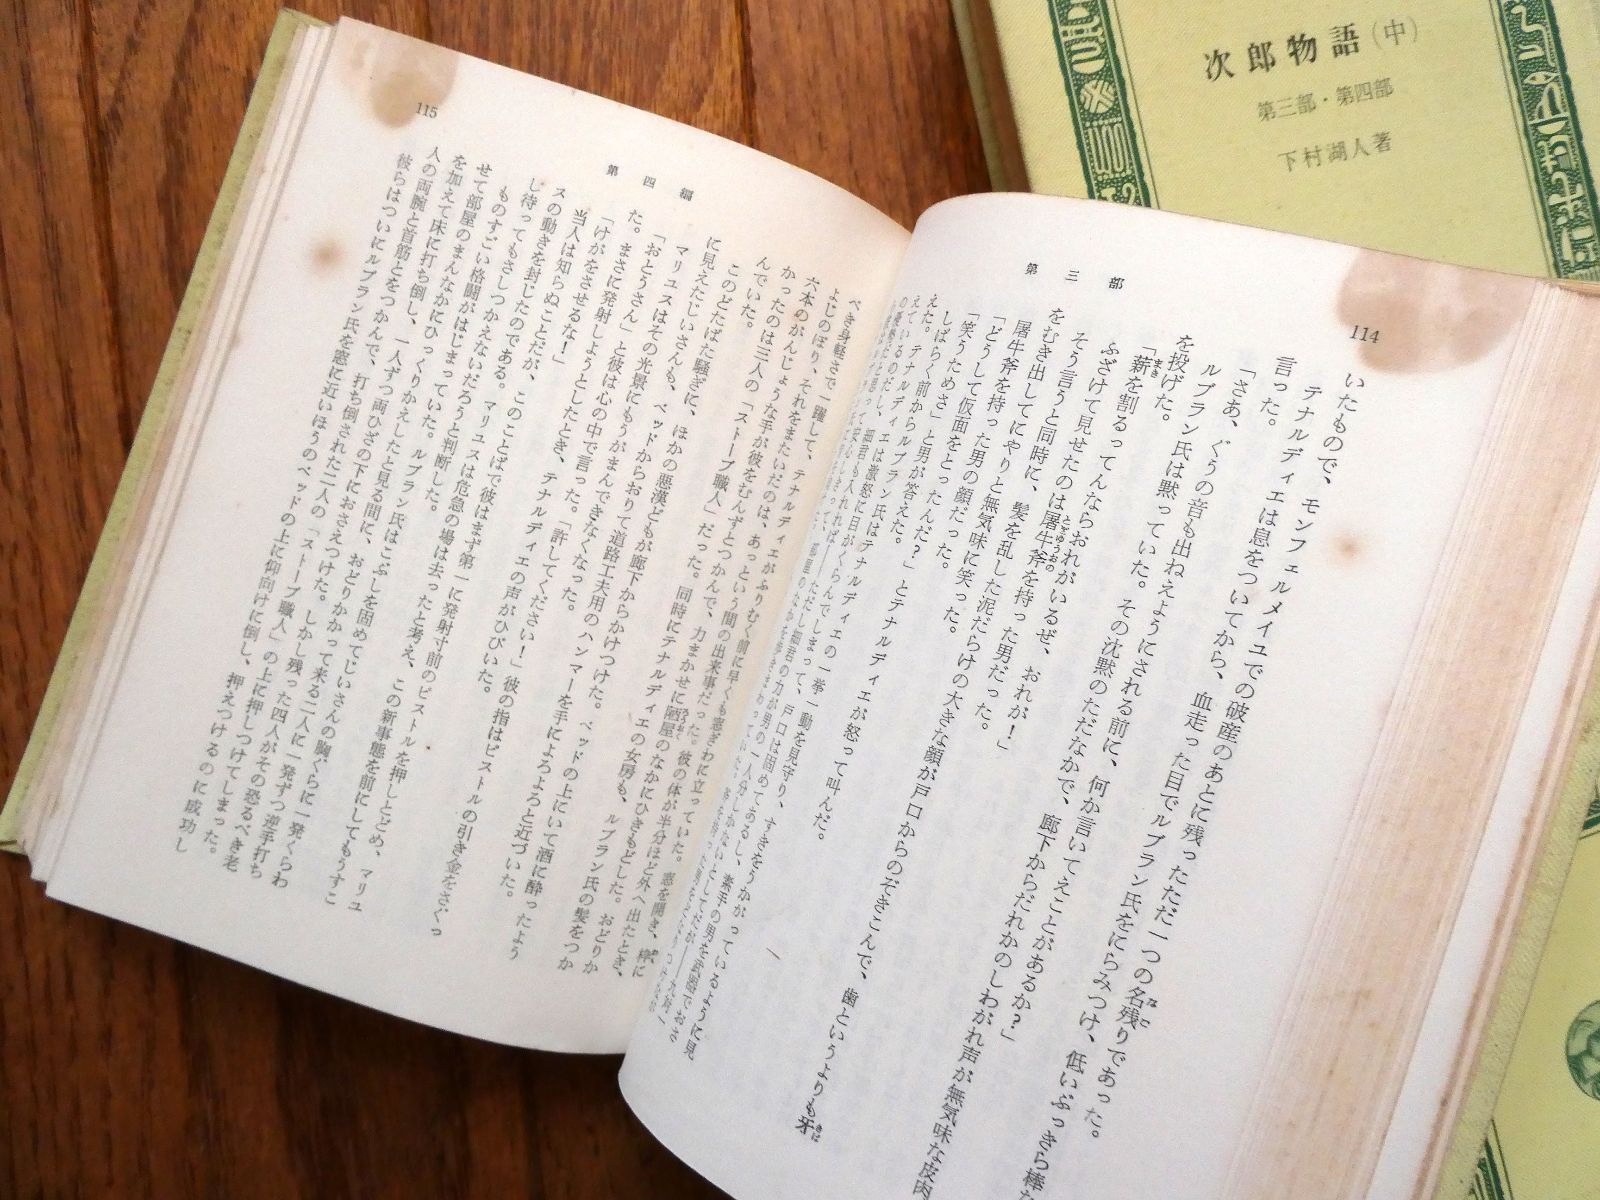 次郎物語(中)
第三部・第四部
下村湖人著
114
第三部
いたもので、モンフェルメイユでの破産のあとに残ったただ一つの名残りであった。
テナルディエは息をついてから、血走った目でルブラン氏をにらみつけ、低いぶっきら棒な
言った。
「さあ、ぐうの音も出ねえようにされる前に、何か言いてえことがあるか?」
ルブラン氏は黙っていた。その沈黙のただなかで、廊下からだれかのしわがれ声が無気味な皮肉
を投げた。
「薪を割るってんならおれがいるぜ、おれが!」
ふざけて見せたのは屠牛斧を持った男だった。
そう言うと同時に、髪を乱した泥だらけの大きな顔が戸口からのぞきこんで、歯というよりも牙
をむき出してにやりと無気味に笑った。
屠牛斧を持った男の顔だった。
「どうして仮面をとったんだ?」とテナルディエが怒って叫んだ。
「笑うためさ」と男が答えた。
しばらく前からルブラン氏はテナルディエの一挙一動を見守り、すきをうかがっているように見
えた。テナルディエは激怒に目がくらんでしまって、戸口は固めてあるし、素手の男を武器でおさ
115
第四編
べき身軽さで一躍して、テナルディエがふりむく前に早くも窓ぎわに立っていた。窓を開き、枠に
よじのぼり、それをまたいだのは、あっという間の出来事だった。彼の体が半分ほど外へ出たとき、
六本のがんじょうな手が彼をむんずとつかんで、力まかせに陋屋のなかにひきもどした。おどりか
かったのは三人の「ストーブ職人」だった。同時にテナルディエの女房も、ルブラン氏の髪をつか
んでいた。
このどたばた騒ぎに、ほかの悪漢どもが廊下からかけつけた。ベッドの上にいて酒に酔ったよう
に見えたじいさんも、ベッドからおりて道路工夫用のハンマーを手によろよろと近づいた。
マリユスはその光景にもうがまんできなくなった。
「おとうさん」と彼は心の中で言った。「許してください!」彼の指はピストルの引き金をさぐっ
た。まさに発射しようとしたとき、テナルディエの声がひびいた。
「けがをさせるな!」
当人は知らぬことだが、このことばで彼はまず第一に発射寸前のピストルを押しとどめ、マリユ
スの動きを封じたのである。マリユスは危急の場は去ったと考え、この新事態を前にしてもうすこ
し待ってもさしつかえないだろうと判断した。
ものすごい格闘がはじまっていた。ルブラン氏はこぶしを固めてじいさんの胸ぐらに一発くらわ
せて部屋のまんなかにひっくりかえしたと見る間に、おどりかかって来る二人に一発ずつ逆手打ち
を加えて床に打ち倒し、一人ずつ両ひざの下におさえつけた。しかし残った四人がその恐るべき老
人の両腕と首筋とをつかんで、打ち倒された二人の「ストーブ職人」の上に押しつけてしまった。
彼らはついにルブラン氏を窓に近いほうのベッドの上に仰向けに倒し、押えつけるのに成功し